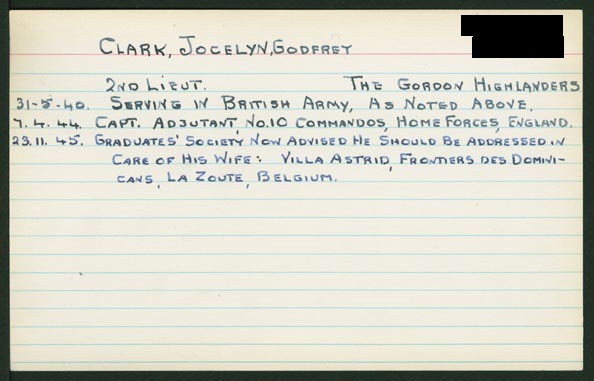 CLARK, JOCELYN, GODFREY
2ND LIEUT. THE GORDON HIGHLANDERS
31-5-40. SERVING IN BRITISH ARMY, AS NOTED ABOVE.
7.4.44. CAPT. ADJUTANT, NO.10 COMMANDOS, HOME FORCES, ENGLAND.
23.11.45. GRADUATES' SOCIETY NOW ADVISED HE SHOULD BE ADDRESSED IN
CARE OF HIS WIFE: VILLA ASTRID, FRONTIERS DES DOMINI-
CANS, LA ZOUTE, BELGIUM.